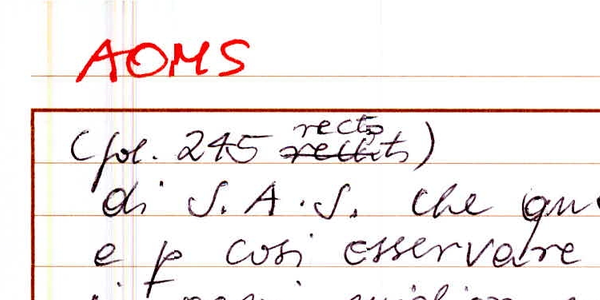 AOMS
(fol. 245 recto)
di S.A.S. che
e p cosi esservare